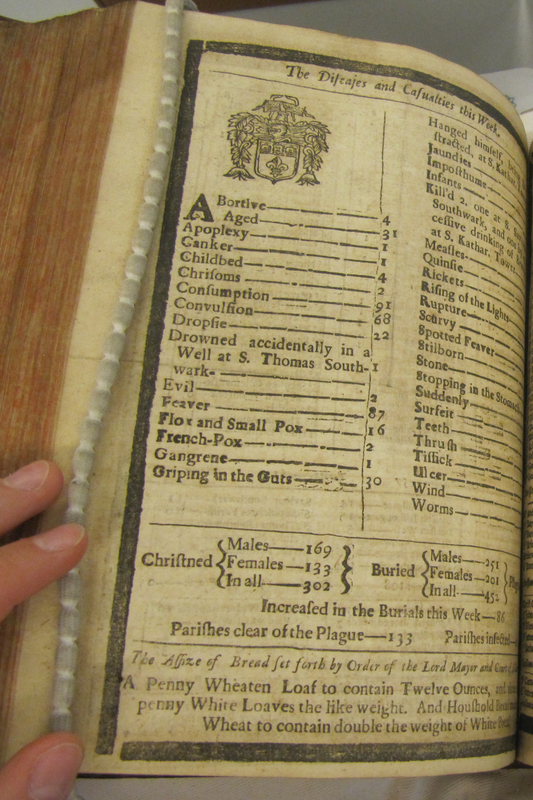 The Diſeaſes and Caſualties this Week.
ABortive 4
Aged 31
Apoplexy 1
Canker 1
Childbed 4
Chriſoms 2
Conſumption 91
Convulſion 68
Dropſie 22
Drowned accidentally in a
Well at S. Thomas South- 1
wark-
Evil 2
Feaver 87
Flox and Small Pox 16
French-Pox 2
Gangrene 1
Griping in the Guts 30
Hanged himſelf, being
ſtracted, at S. Kathar.
Jaundies
Impoſthume
Infants
Kill'd 2. one at S.
Southwark, and one
ceſſive drinking of
at S. Kathar. Tower
Meaſles
Quinſie
Rickets
Riſing of the Lights
Rupture
Scurvy
Spotted Feaver
Stilborn
Stone
Stopping in the Stomach
Suddenly
Surfeit
Teeth
Thruſh
Tiſſick
Ulcer
Wind
Worms
Chriſtned
Males 169
Females 133
In all 302
Buried
Males 251
Females 201
In all 452
Increaſed in the Burials this Week 86
Pariſhes clear of the Plague 133 Pariſhes infected
The Aſſize of Bread ſet forth by Order of the Lord Mayor and Court of
A Penny Wheaten Loaf to contain Twelve Ounces, and
penny White Loaves the like weight. And Houſhold
Wheat to contain double the weight of White